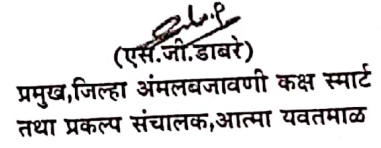 (एस.जी.डाबरे)
प्रमुख,जिल्हा अंमलबजावणी कक्ष स्मार्ट
तथा प्रकल्प संचालक,आत्मा यवतमाळ